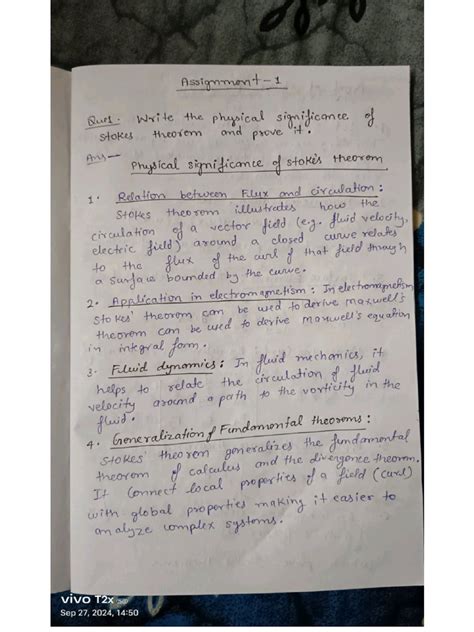 Assignment - 1
Que1. Write the physical significance of
stokes theorem and prove it.
Ans -
Physical significance of stoke's theorem
1. Relation between Flux and circulation :
Stokes theorem illustrates how the
circulation of a vector field (e.g. fluid velocity,
electric field) around a closed curve relates
to the flux of the curl of that field through
a surface bounded by the curve.
2. Application in electromagnetism : In electromagnetism
stokes' theorem can be used to derive maxwell's
theorem can be used to derive maxwell's equation
in integral form.
3. Fluid dynamics : In fluid mechanics, it
helps to relate the circulation of fluid
velocity around a path to the vorticity in the
fluid.
4. Generalization of Fundamental theorems :
stokes' theorem generalizes the fundamental
theorem of calculus and the divergence theorem.
It connect local properties of a field (curl)
with global properties making it easier to
analyze complex systems.
vivo T2x
Sep 27, 2024, 14:50